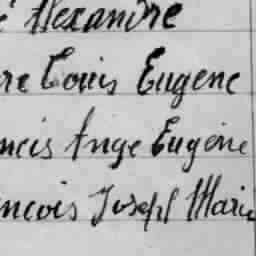 Alexandre
re Louis Eugene
ncis Ange Eugène
ncois Joseph Marie